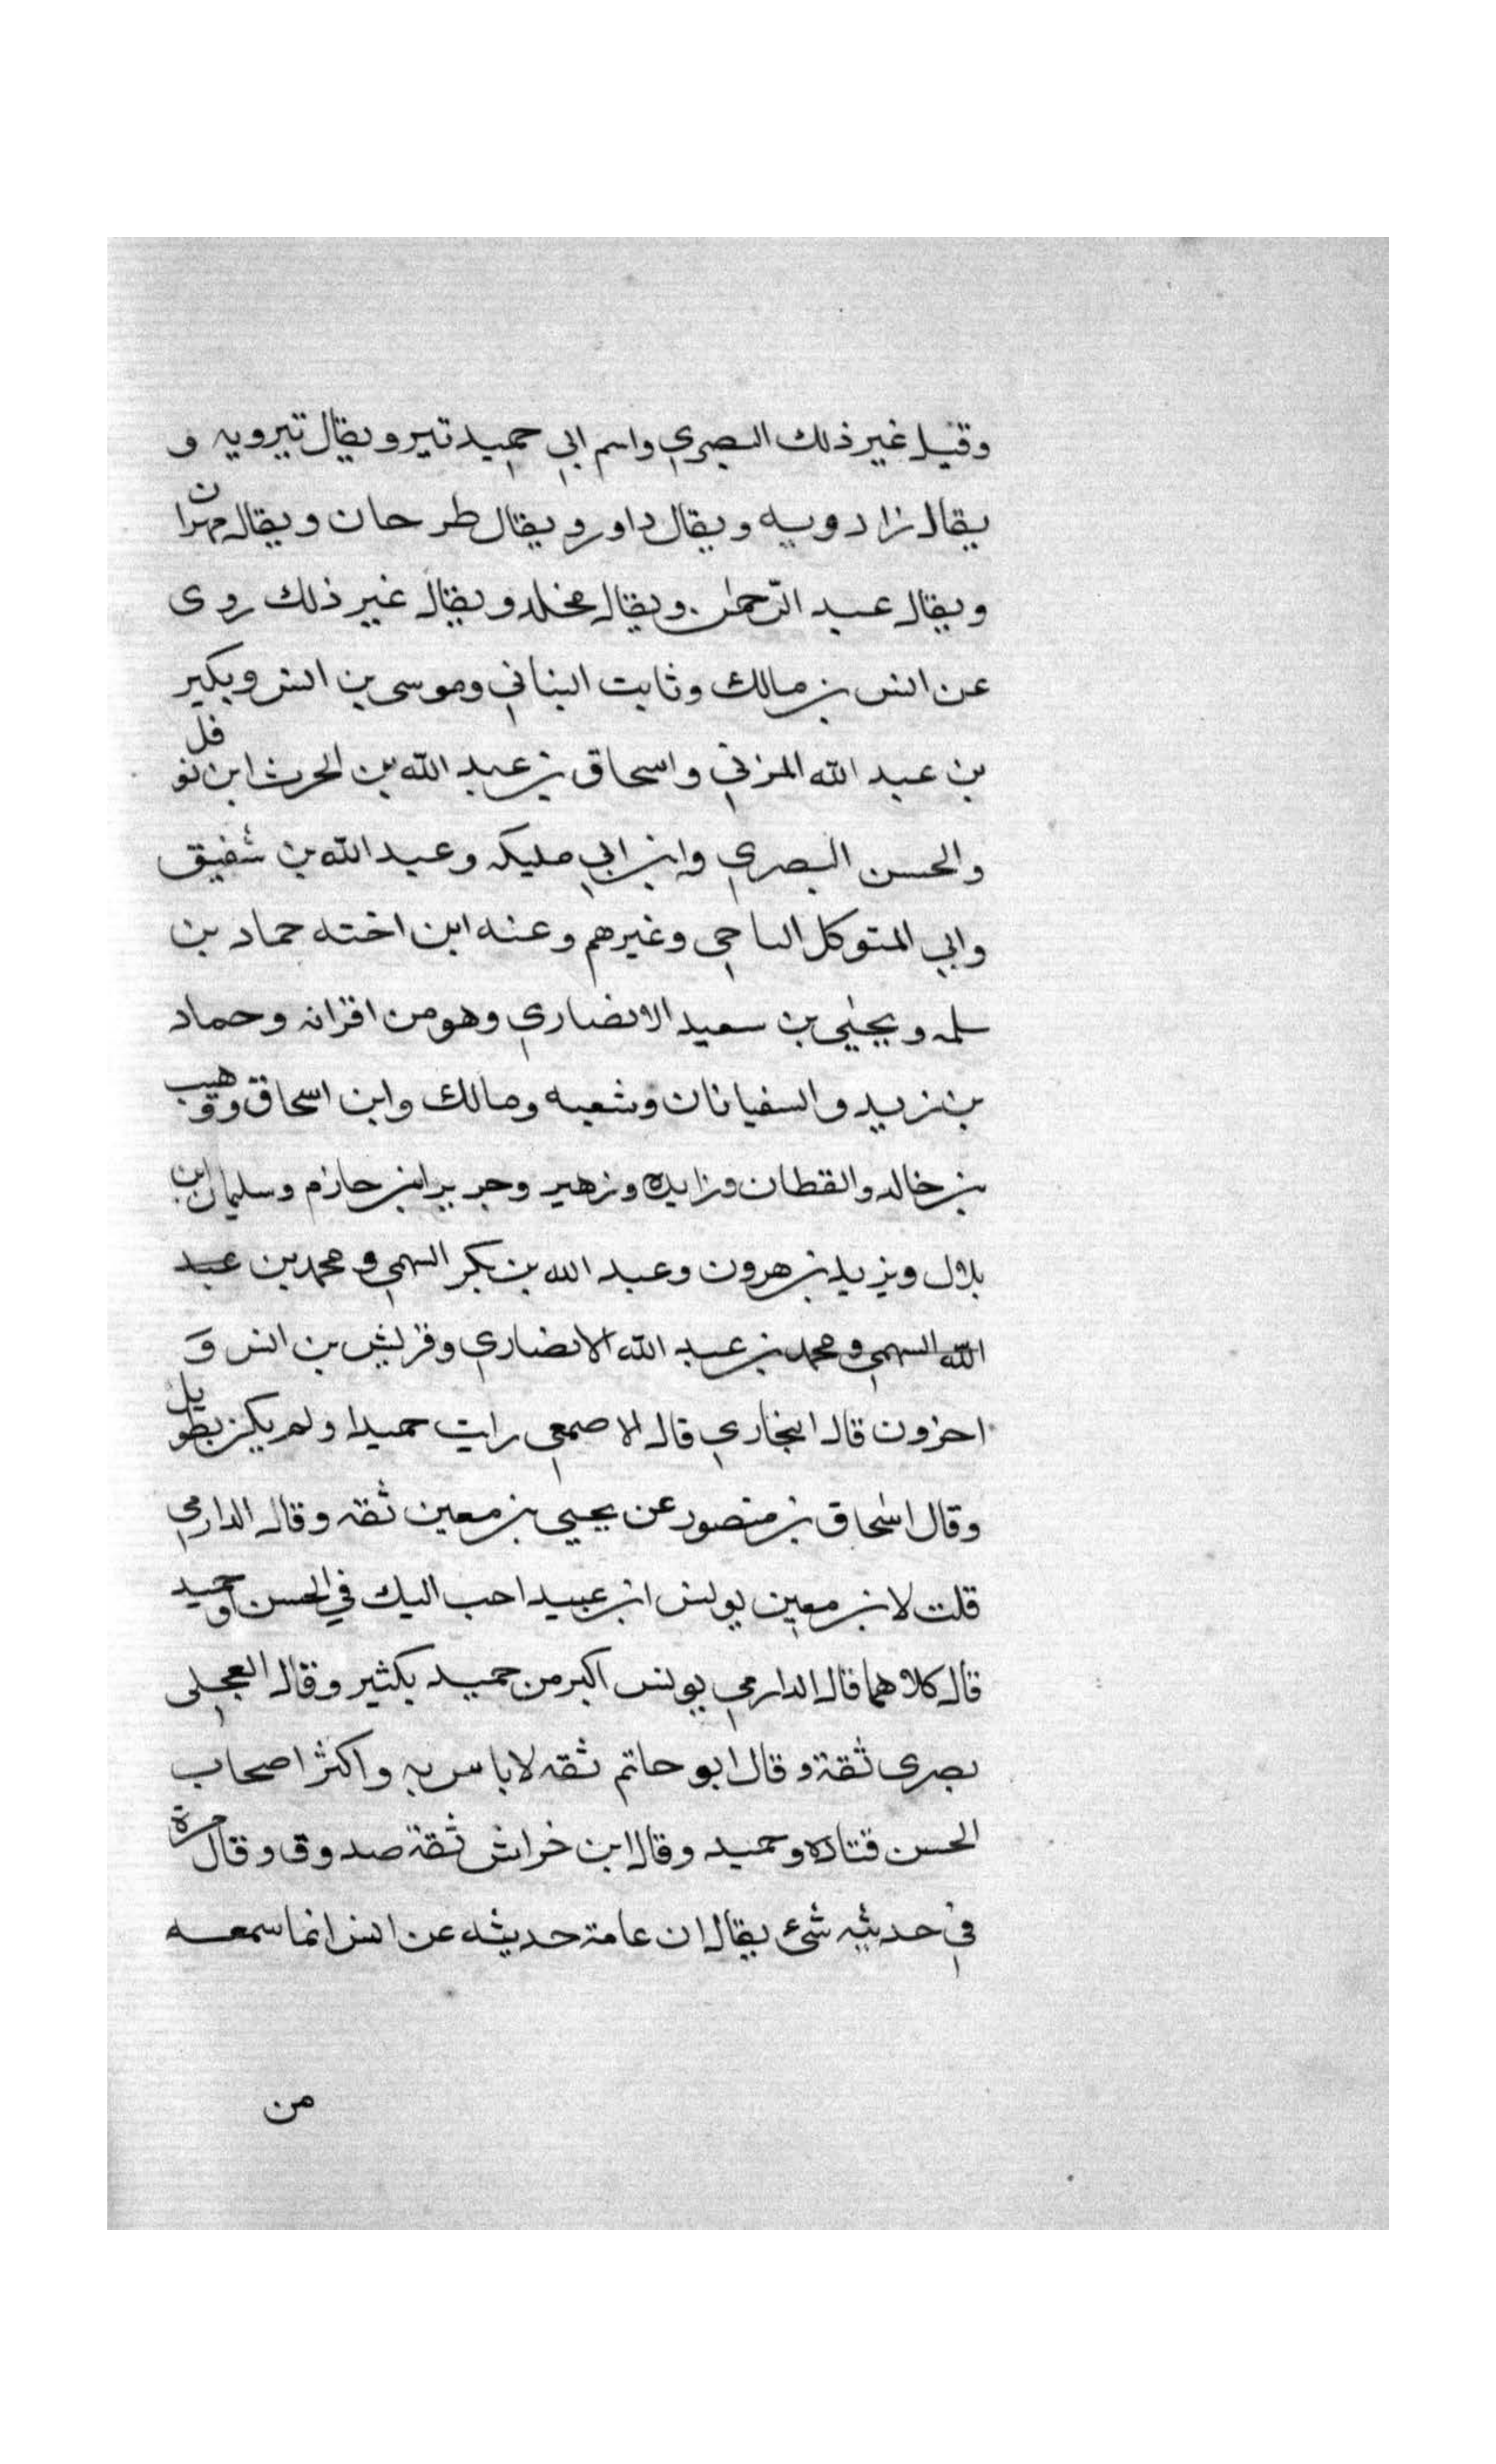 وقيل غير ذلك البصري واسم ابي حميد تير ويقال تيرويه و
يقال زادويه ويقال داور ويقال طرحان ويقال مهران
ويقال عبد الرحمن ويقال مخلد ويقال غير ذلك روى
عن انس بن مالك وثابت البناني وموسى بن انس وبكير
بن عبد الله المزني واسحاق بن عبد الله بن الحرث ابن نوفل
والحسن البصري وابن ابي مليكه وعبد الله بن شقيق
وابي المتوكل الناجي وغيرهم وعنه ابن اخته حماد بن
سلمه ويحيى بن سعيد الانصاري وهو من اقرانه وحماد
بن زيد والسفيانان وشعبه ومالك وابن اسحاق ووهيب
بن خالد والقطان وزايده وزهير وجرير ابن حازم وسليمان ابن
بلال ويزيد بن هرون وعبد الله بن بكر السهمي ومحمد بن عبد
الله السهمي ومحمد بن عبد الله الانصاري وقريش بن انس و
اخرون قال البخاري قال الاصمعي رايت حميدا ولم يكن بطويل
وقال اسحاق بن منصور عن يحيى بن معين ثقه وقال الدارمي
قلت لابن معين يونس ابن عبيد احب اليك في الحسن او حميد
قال كلاهما قال الدارمي يونس اكبر من حميد بكثير وقال العجلي
بصرى ثقة وقال ابو حاتم ثقه لا باس به واكثر اصحاب
الحسن قتاده وحميد وقال ابن خراش ثقة صدوق وقال مرة
في حديثه شئ يقال ان عامة حديثه عن انس انما سمعه
من